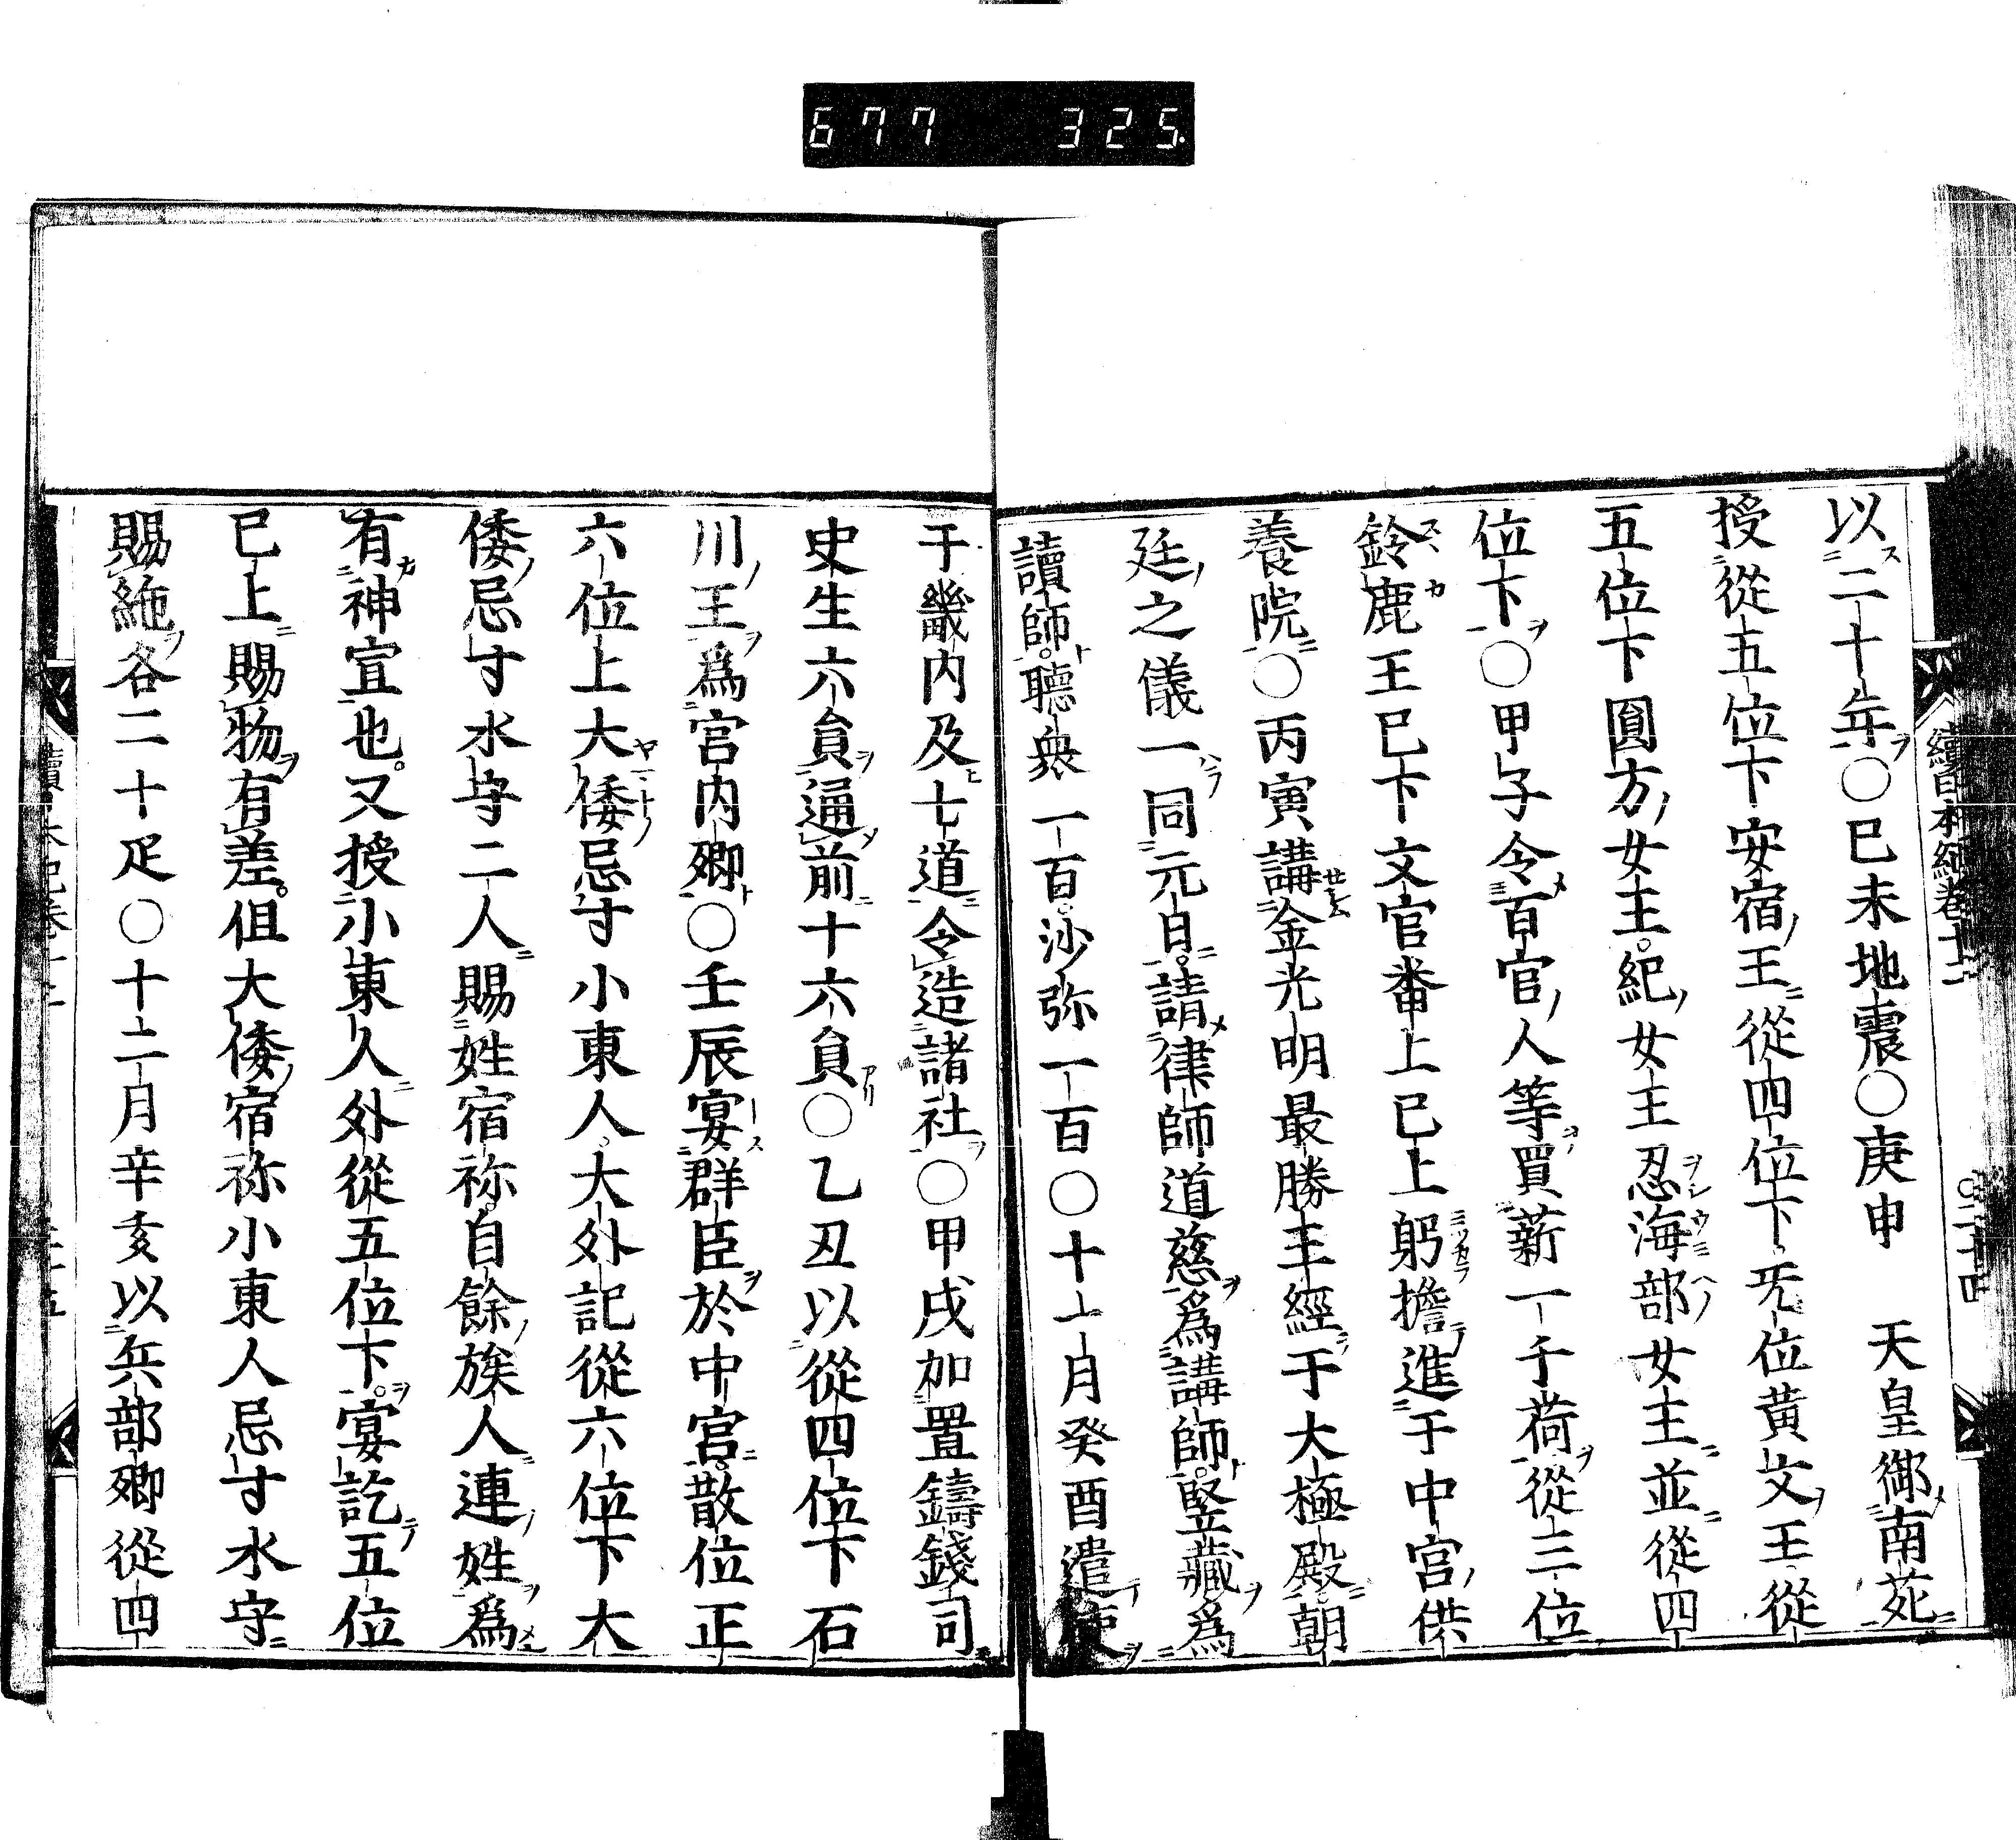 677 325
續日本紀卷十二
○三十四
以二十年○巳未地震○庚申　天皇御南苑
授從五位下安宿王從四位下无位黄文王從
五位下圓方女王紀女王忍海部女王並從四
位下○甲子令百官人等買薪一千荷從三位
鈴鹿王巳下文官番上巳上躬擔進于中宮供
養院○丙寅講金光明最勝王經于大極殿朝
廷之儀一同元日請律師道慈爲講師堅藏爲
讀師聽衆一百沙弥一百○十一月癸酉遣使
于畿内及七道令造諸社○甲戌加置鑄錢司
史生六負通前十六負○乙丑以從四位下石
川王爲宮内卿○壬辰宴群臣於中宮散位正
六位上大倭忌寸小東人大外記從六位下大
倭忌寸水守二人賜姓宿祢自餘族人連姓爲
有神宣也又授小東人外從五位下宴訖五位
巳上賜物有差但大倭宿祢小東人忌寸水守
賜絁各二十疋○十二月辛亥以兵部卿從四